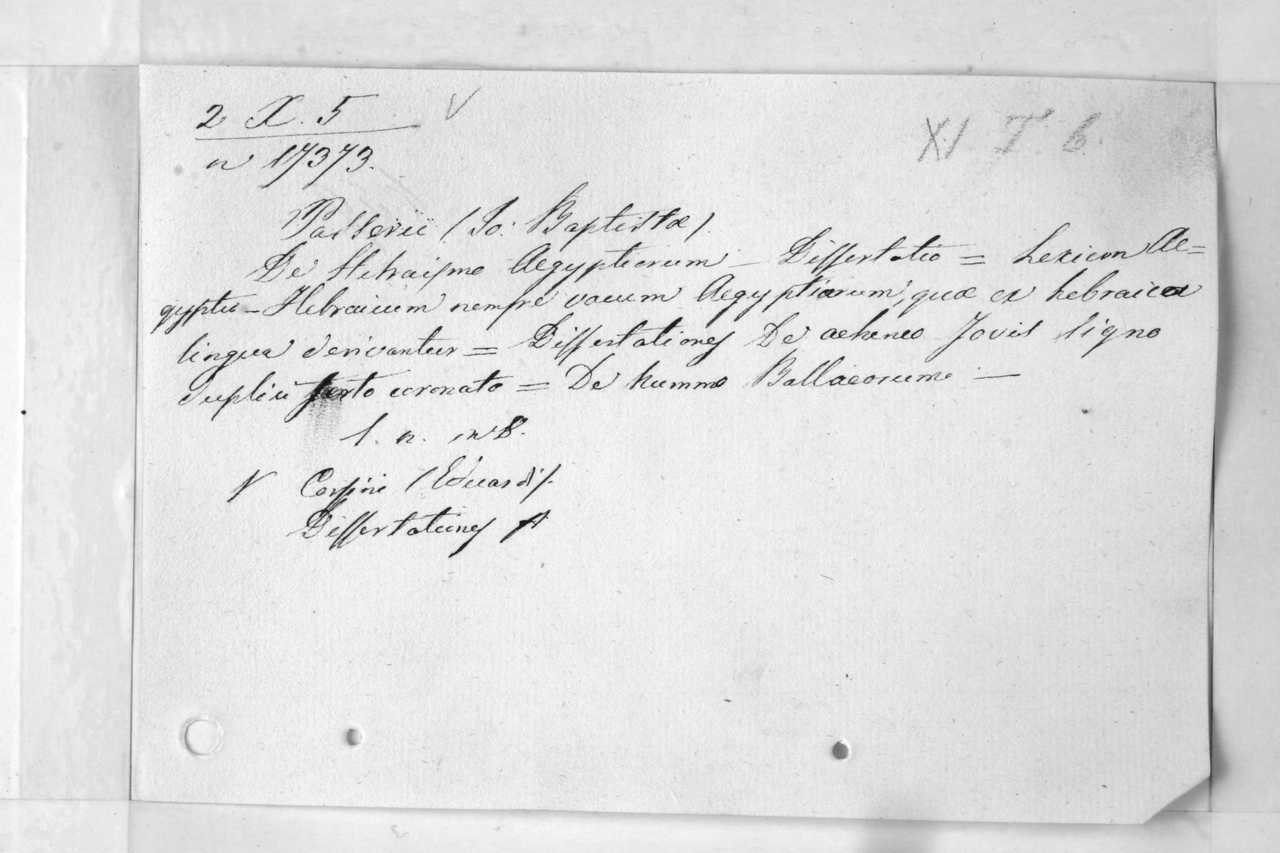 2 X. 5 V
XI T. 6.
n 17373.
Passerii (Jo: Baptistæ).
De Hebraismo Aegyptiorum — Dissertatio = Lexicon Ae=
gyptio-Hebraicum nempe vocum Aegyptiarum, quæ ex hebraica
lingua derivantur = Dissertationes De aeheneo Jovis signo
duplici serto coronato = De Nummo Ballaeorum —
1. n. in 8.
V Corsini (Eduardi).
Dissertationes